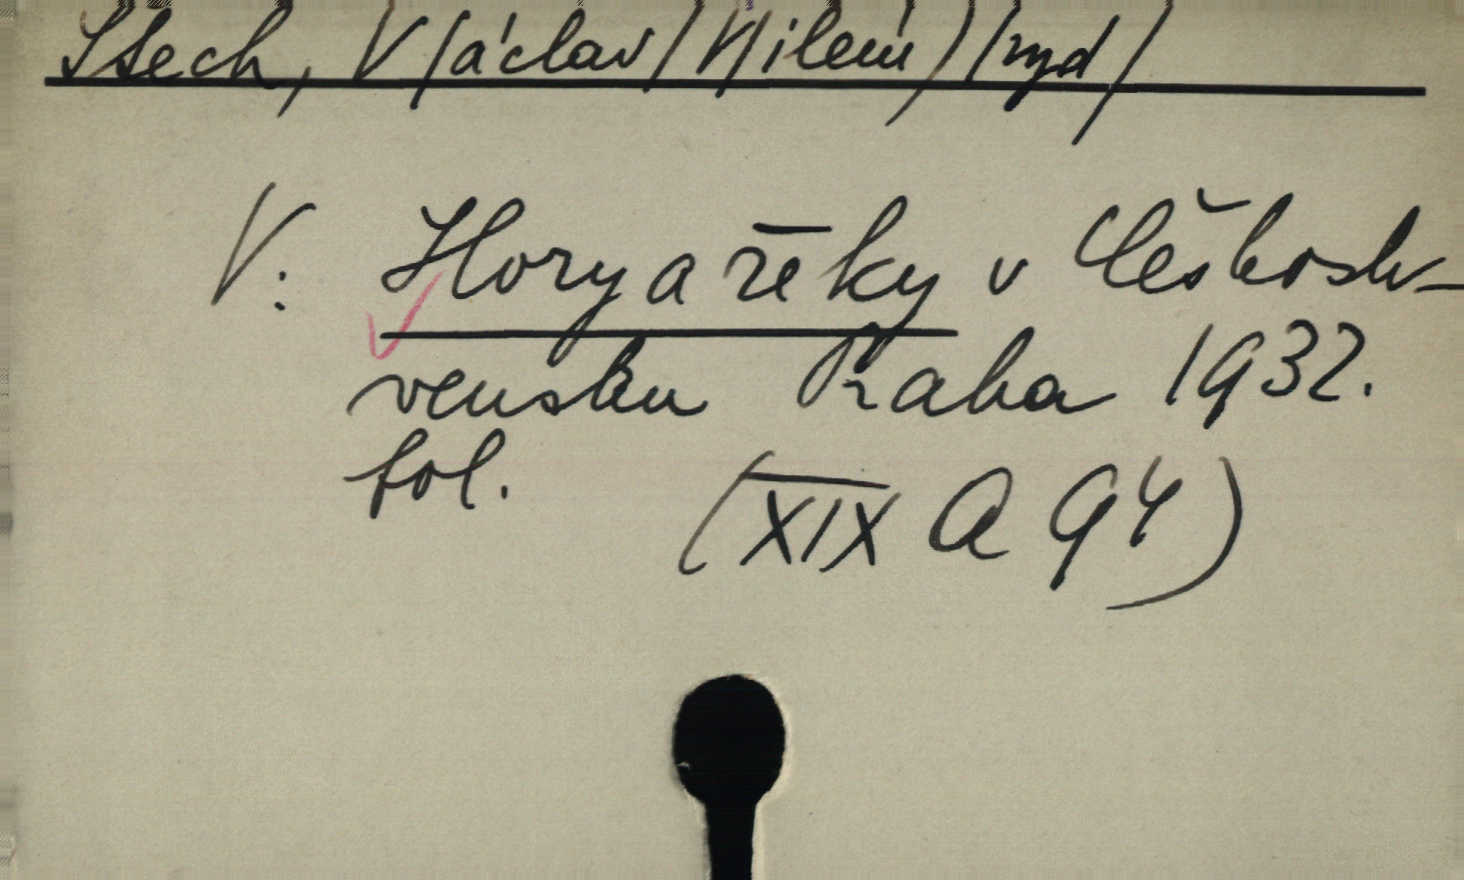 Štech, V/áclav/ V/ilém/ /vyd/
V: Hory a řeky v Českoslo-
vensku Praha 1932.
fol.
(XIX A 94)